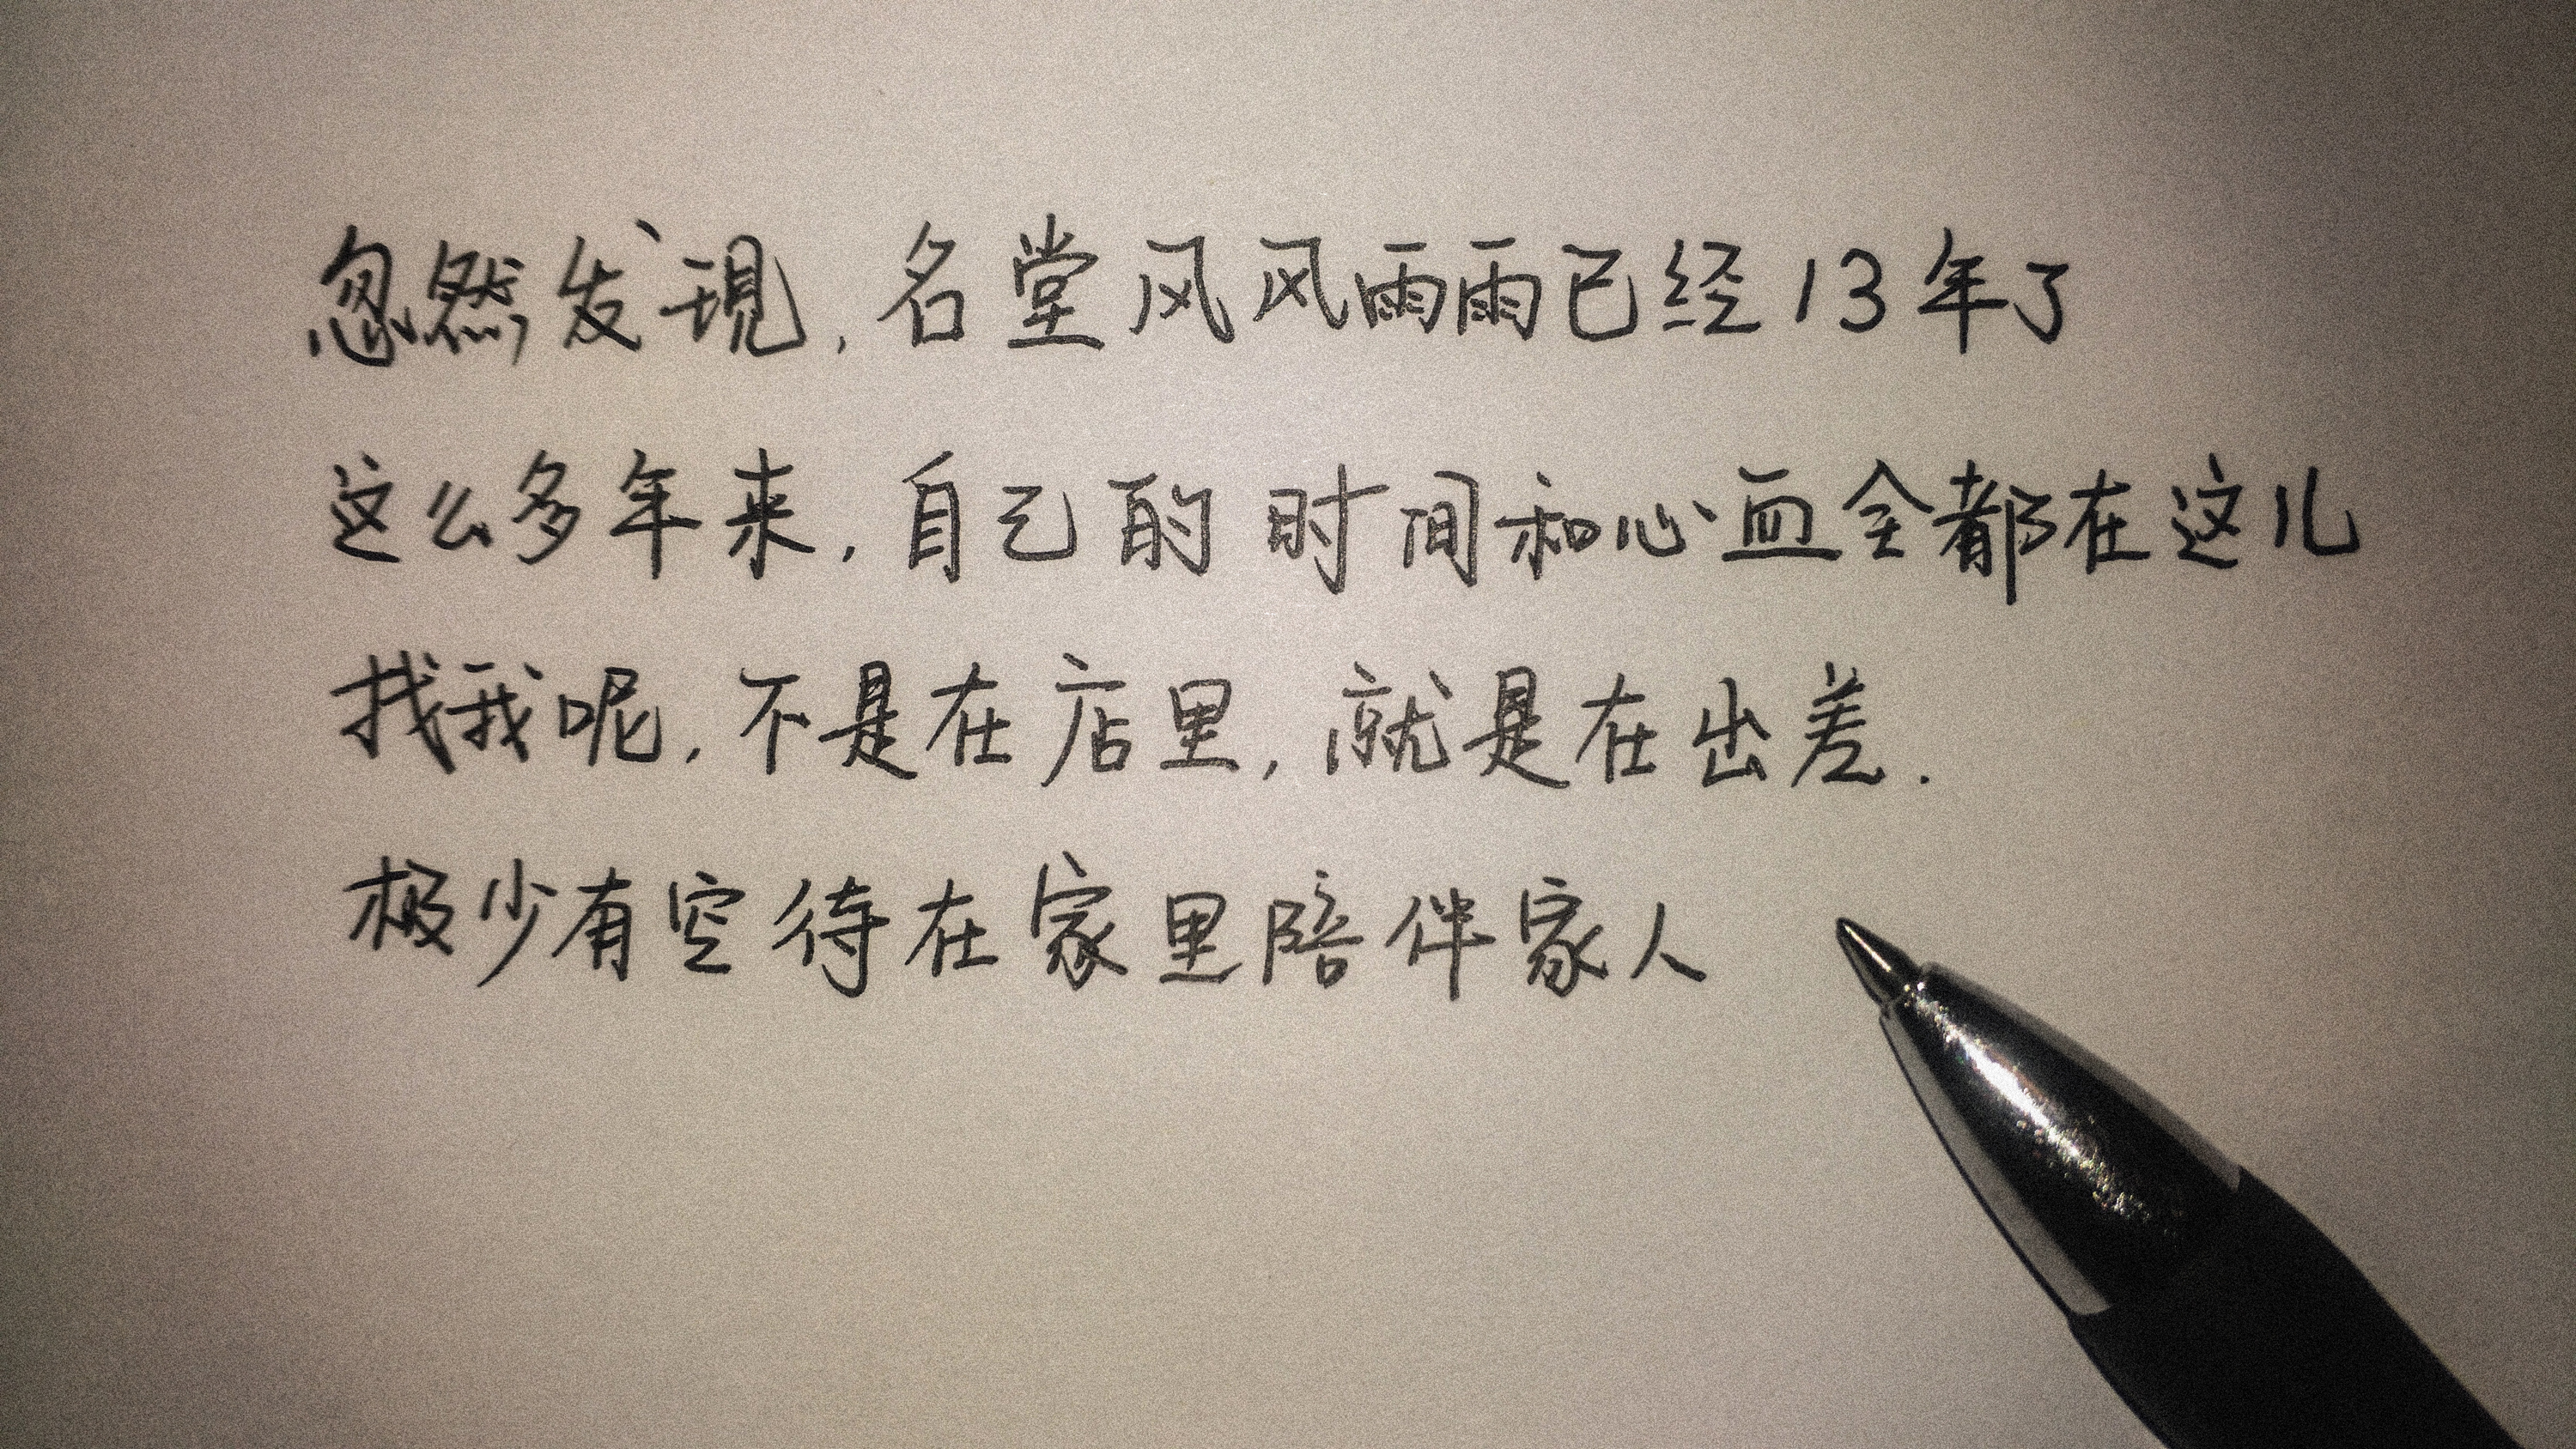 忽然发现,名堂风风雨雨已经13年了
这么多年来,自己的时间和心血全都在这儿
找我呢,不是在店里,就是在出差.
极少有空待在家里陪伴家人